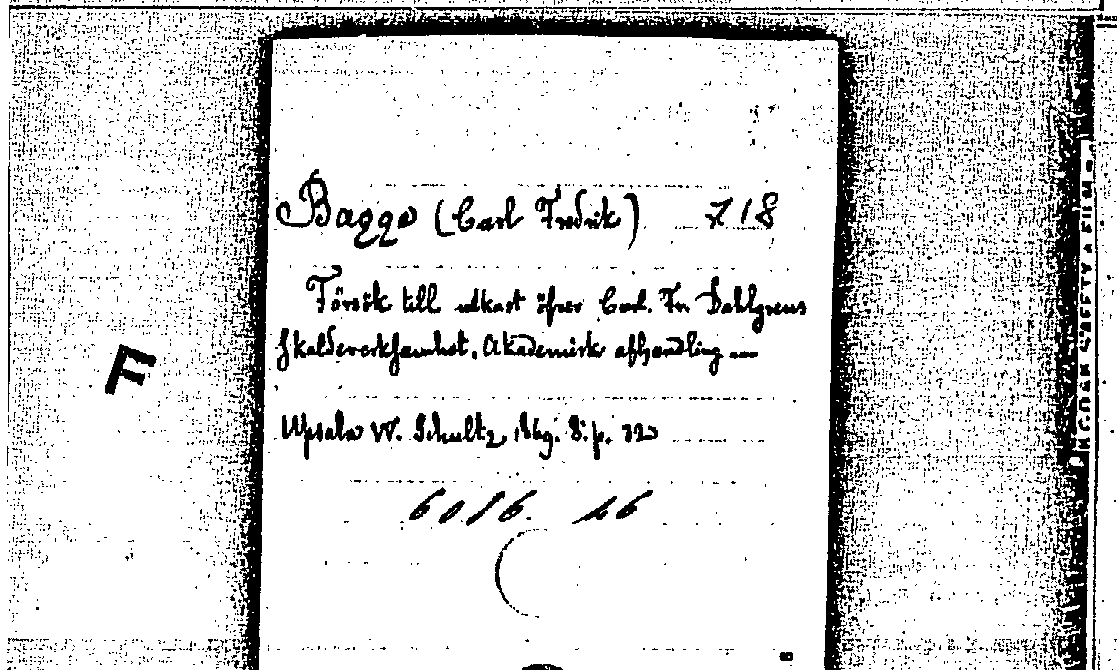 Bagge (Carl Fredrik) 718
Försök till utkast öfver Carl. Fr. Dahlgrens
Skaldeverksamhet. Akademisk afhandling
F
Upsala W. Schultz, 8:o p. 32
6016. 26
KODAK SAFETY FILM